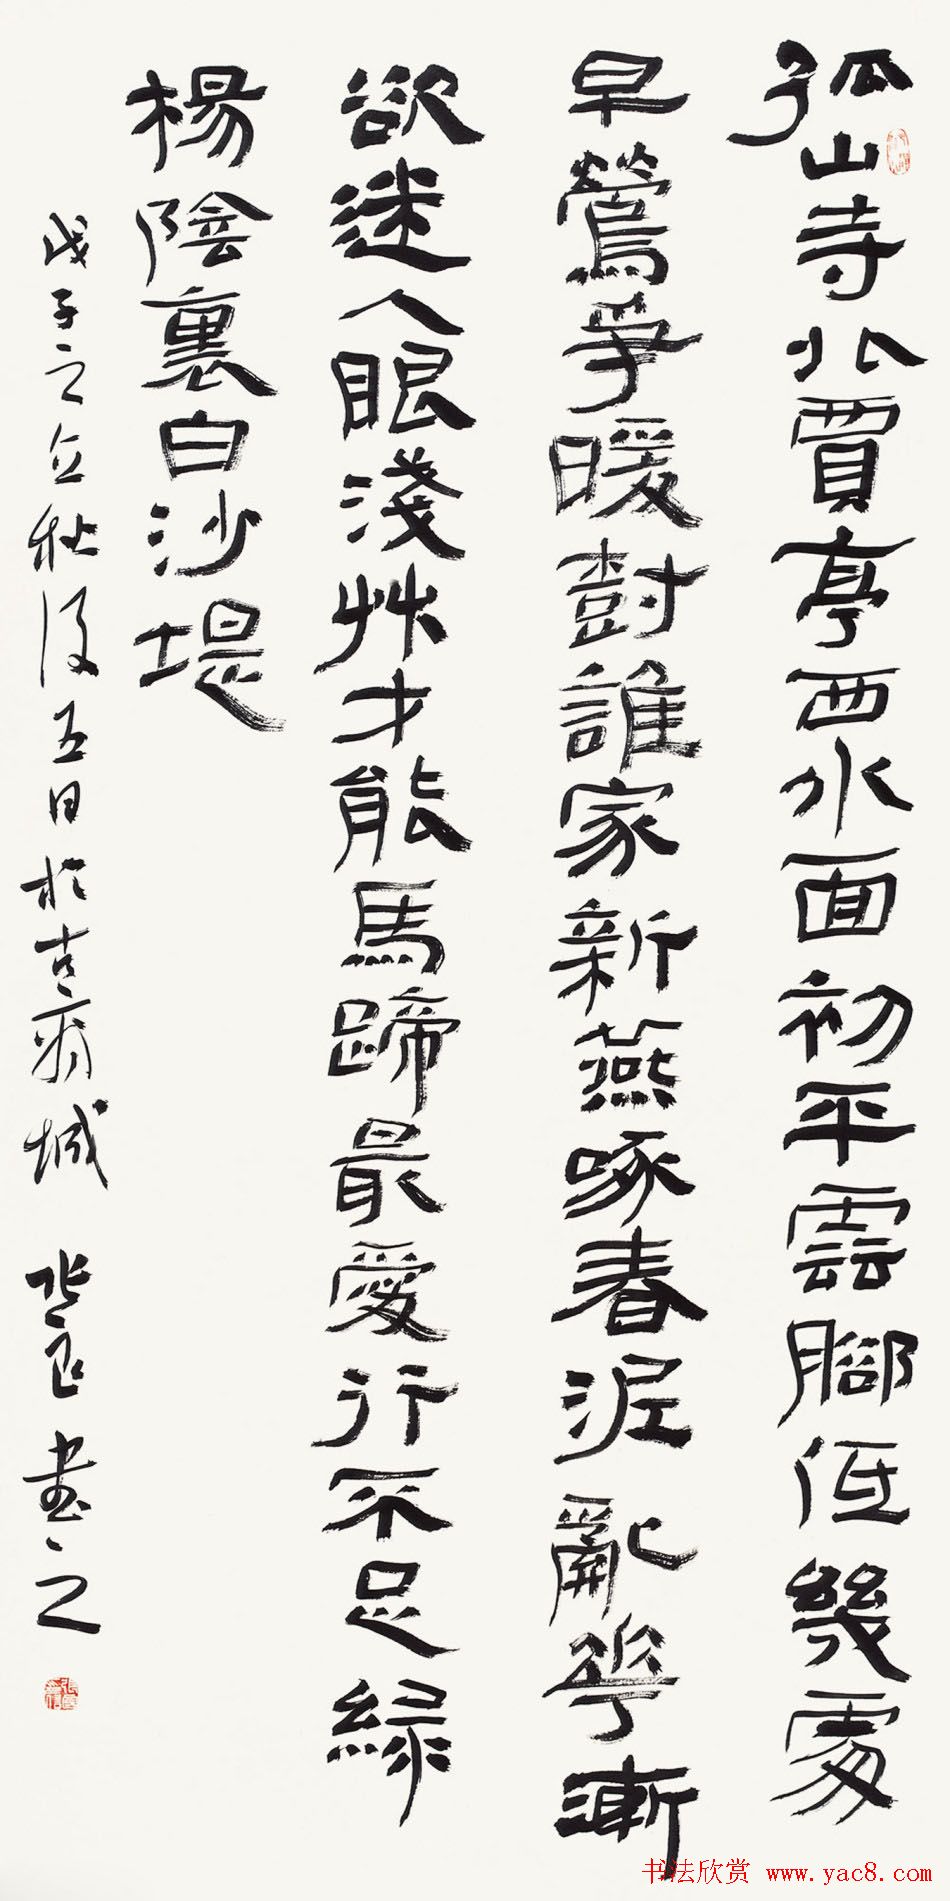 孤山寺北賈亭西水面初平雲腳低幾處
早鶯爭暖樹誰家新燕啄春泥亂華漸
欲迷人眼淺艸才能馬蹄最愛行不足綠
楊陰裏白沙堤
戊子之立秋後五日於古城 書之
书法欣赏 www.yac8.com